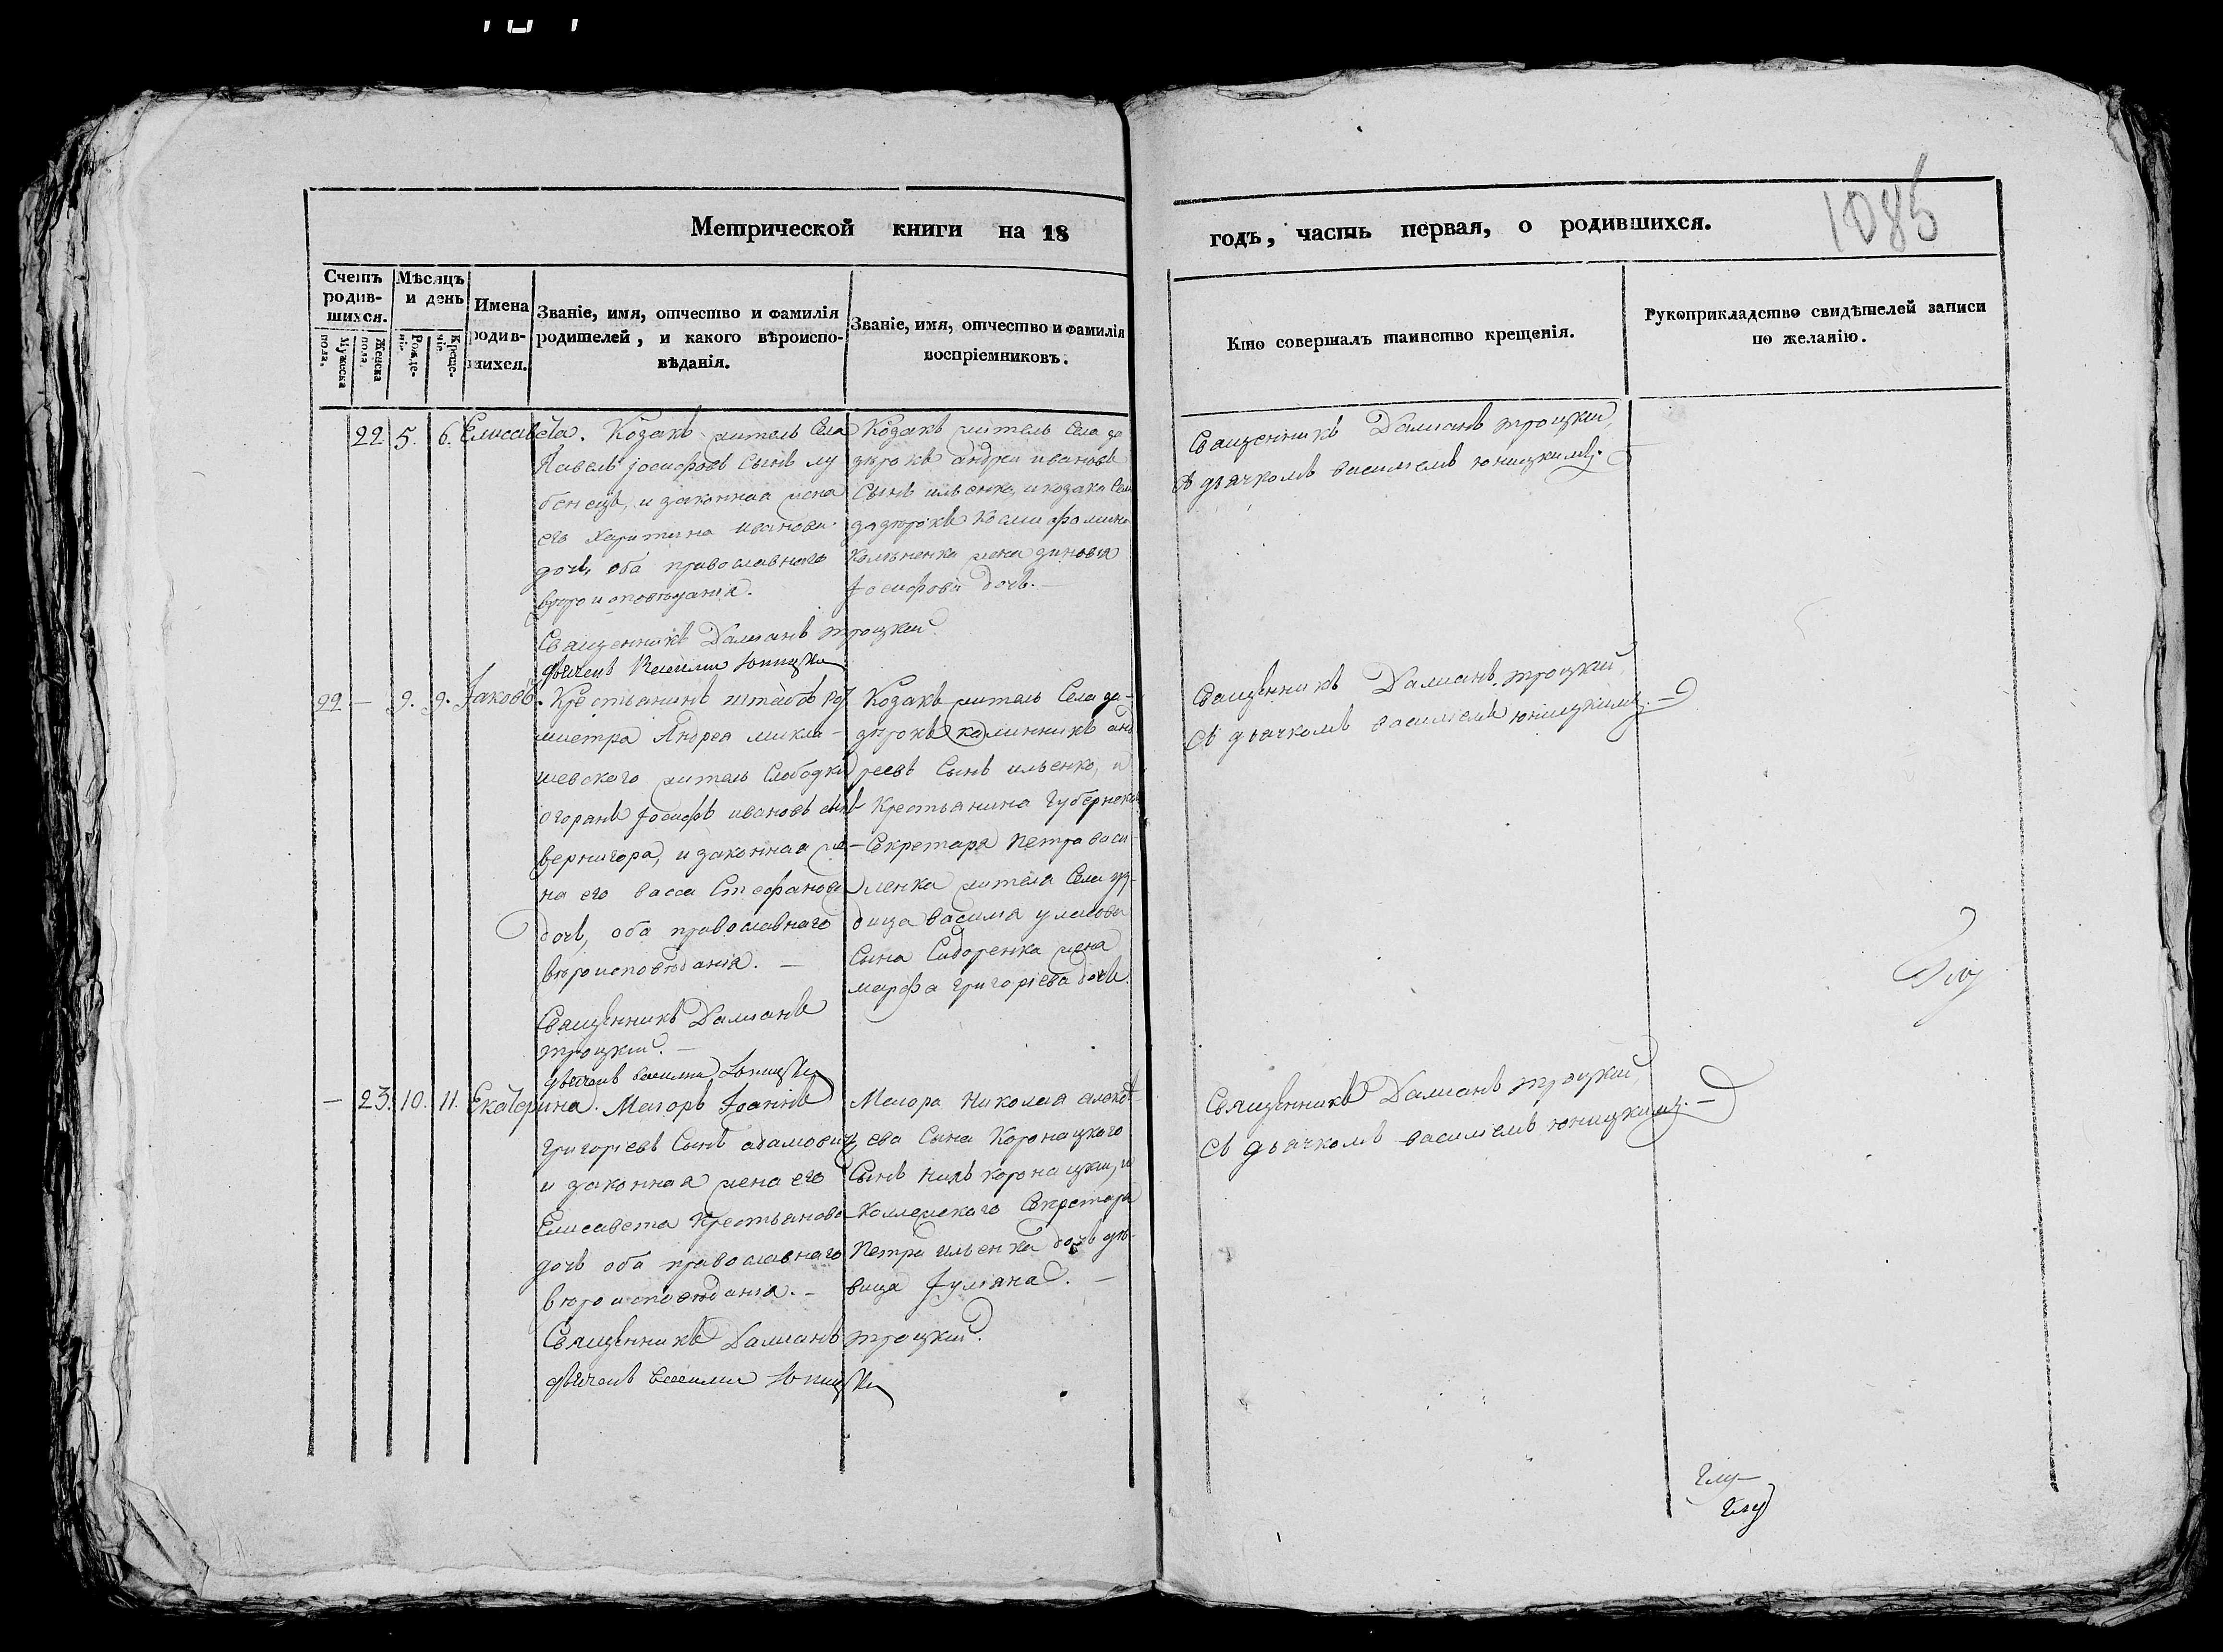 Метрической книги на 18
годъ, часть первая, о родившихся.
1085
Счетъ родив- шихся.
Мужеска пола.
Женска пола.
Мѣсяцъ и день
Рожде- нія.
Креще- нія.
Имена родив- шихся.
Званіе, имя, отчество и фамилія родителей, и какого вѣроиспо- вѣданія.
Званіе, имя, отчество и фамилія воспріемниковъ.
Кто совершалъ таинство крещенія.
Рукоприкладство свидѣтелей записи по желанію.
22. 5. 6. Елисавета.
Козакъ житель Села
Павелъ Іосифовъ Сынъ лу
бенецъ, и законная жена
его Харитина иванова
дочь, оба православнаго
вѣроисповѣданія.
Священникъ Даміанъ троцкій.
дьячекъ Василій Юницкій
Козакъ житель Села за
андрей ивановъ
Сынъ ильенко, и козака Села
жена зиновія
Іосифова дочь.
Священникъ Даміанъ троцкій,
съ дьячкомъ василіемъ юницкимъ.
22 — 9. 9. Іаковъ.
Крестьянинъ штабъ ро
мистра Андрея микла-
шевского житель Слободки
Іосифъ ивановъ сынъ
вернигора, и законная же-
на его васса Стефанова
дочь, оба православнаго
вѣроисповѣданія. —
Священникъ Даміанъ
троцкій. —
дьячекъ василій Юницкій
Козакъ житель Села за-
калинникъ анд
реевъ Сынъ ильенко, и
Крестьянина Губернска
Секретаря Петра васи
ленка жителя Села
василія
Сына Сидоренка жена
марфа григоріева дочь.
Священникъ Даміанъ троцкій,
съ дьячкомъ василіемъ юницкимъ. —
— 23. 10. 11. Екатерина.
Маіоръ Іоаннъ
григоріевъ Сынъ адамовичъ,
и законная жена его
Елисавета Крестьянова
дочь оба православнаго
вѣроисповѣданія. —
Священникъ Даміанъ троцкій.
дьячекъ василій Юницкій
Маіора Николая алексѣ-
ева Сына Коронацкого
Сынъ Нилъ коронацкій, и
Коллежского Секретаря
Петра ильенка дочь дѣ-
вица Іуліана. —
Священникъ Даміанъ троцкій,
съ дьячкомъ василіемъ юницкимъ. —